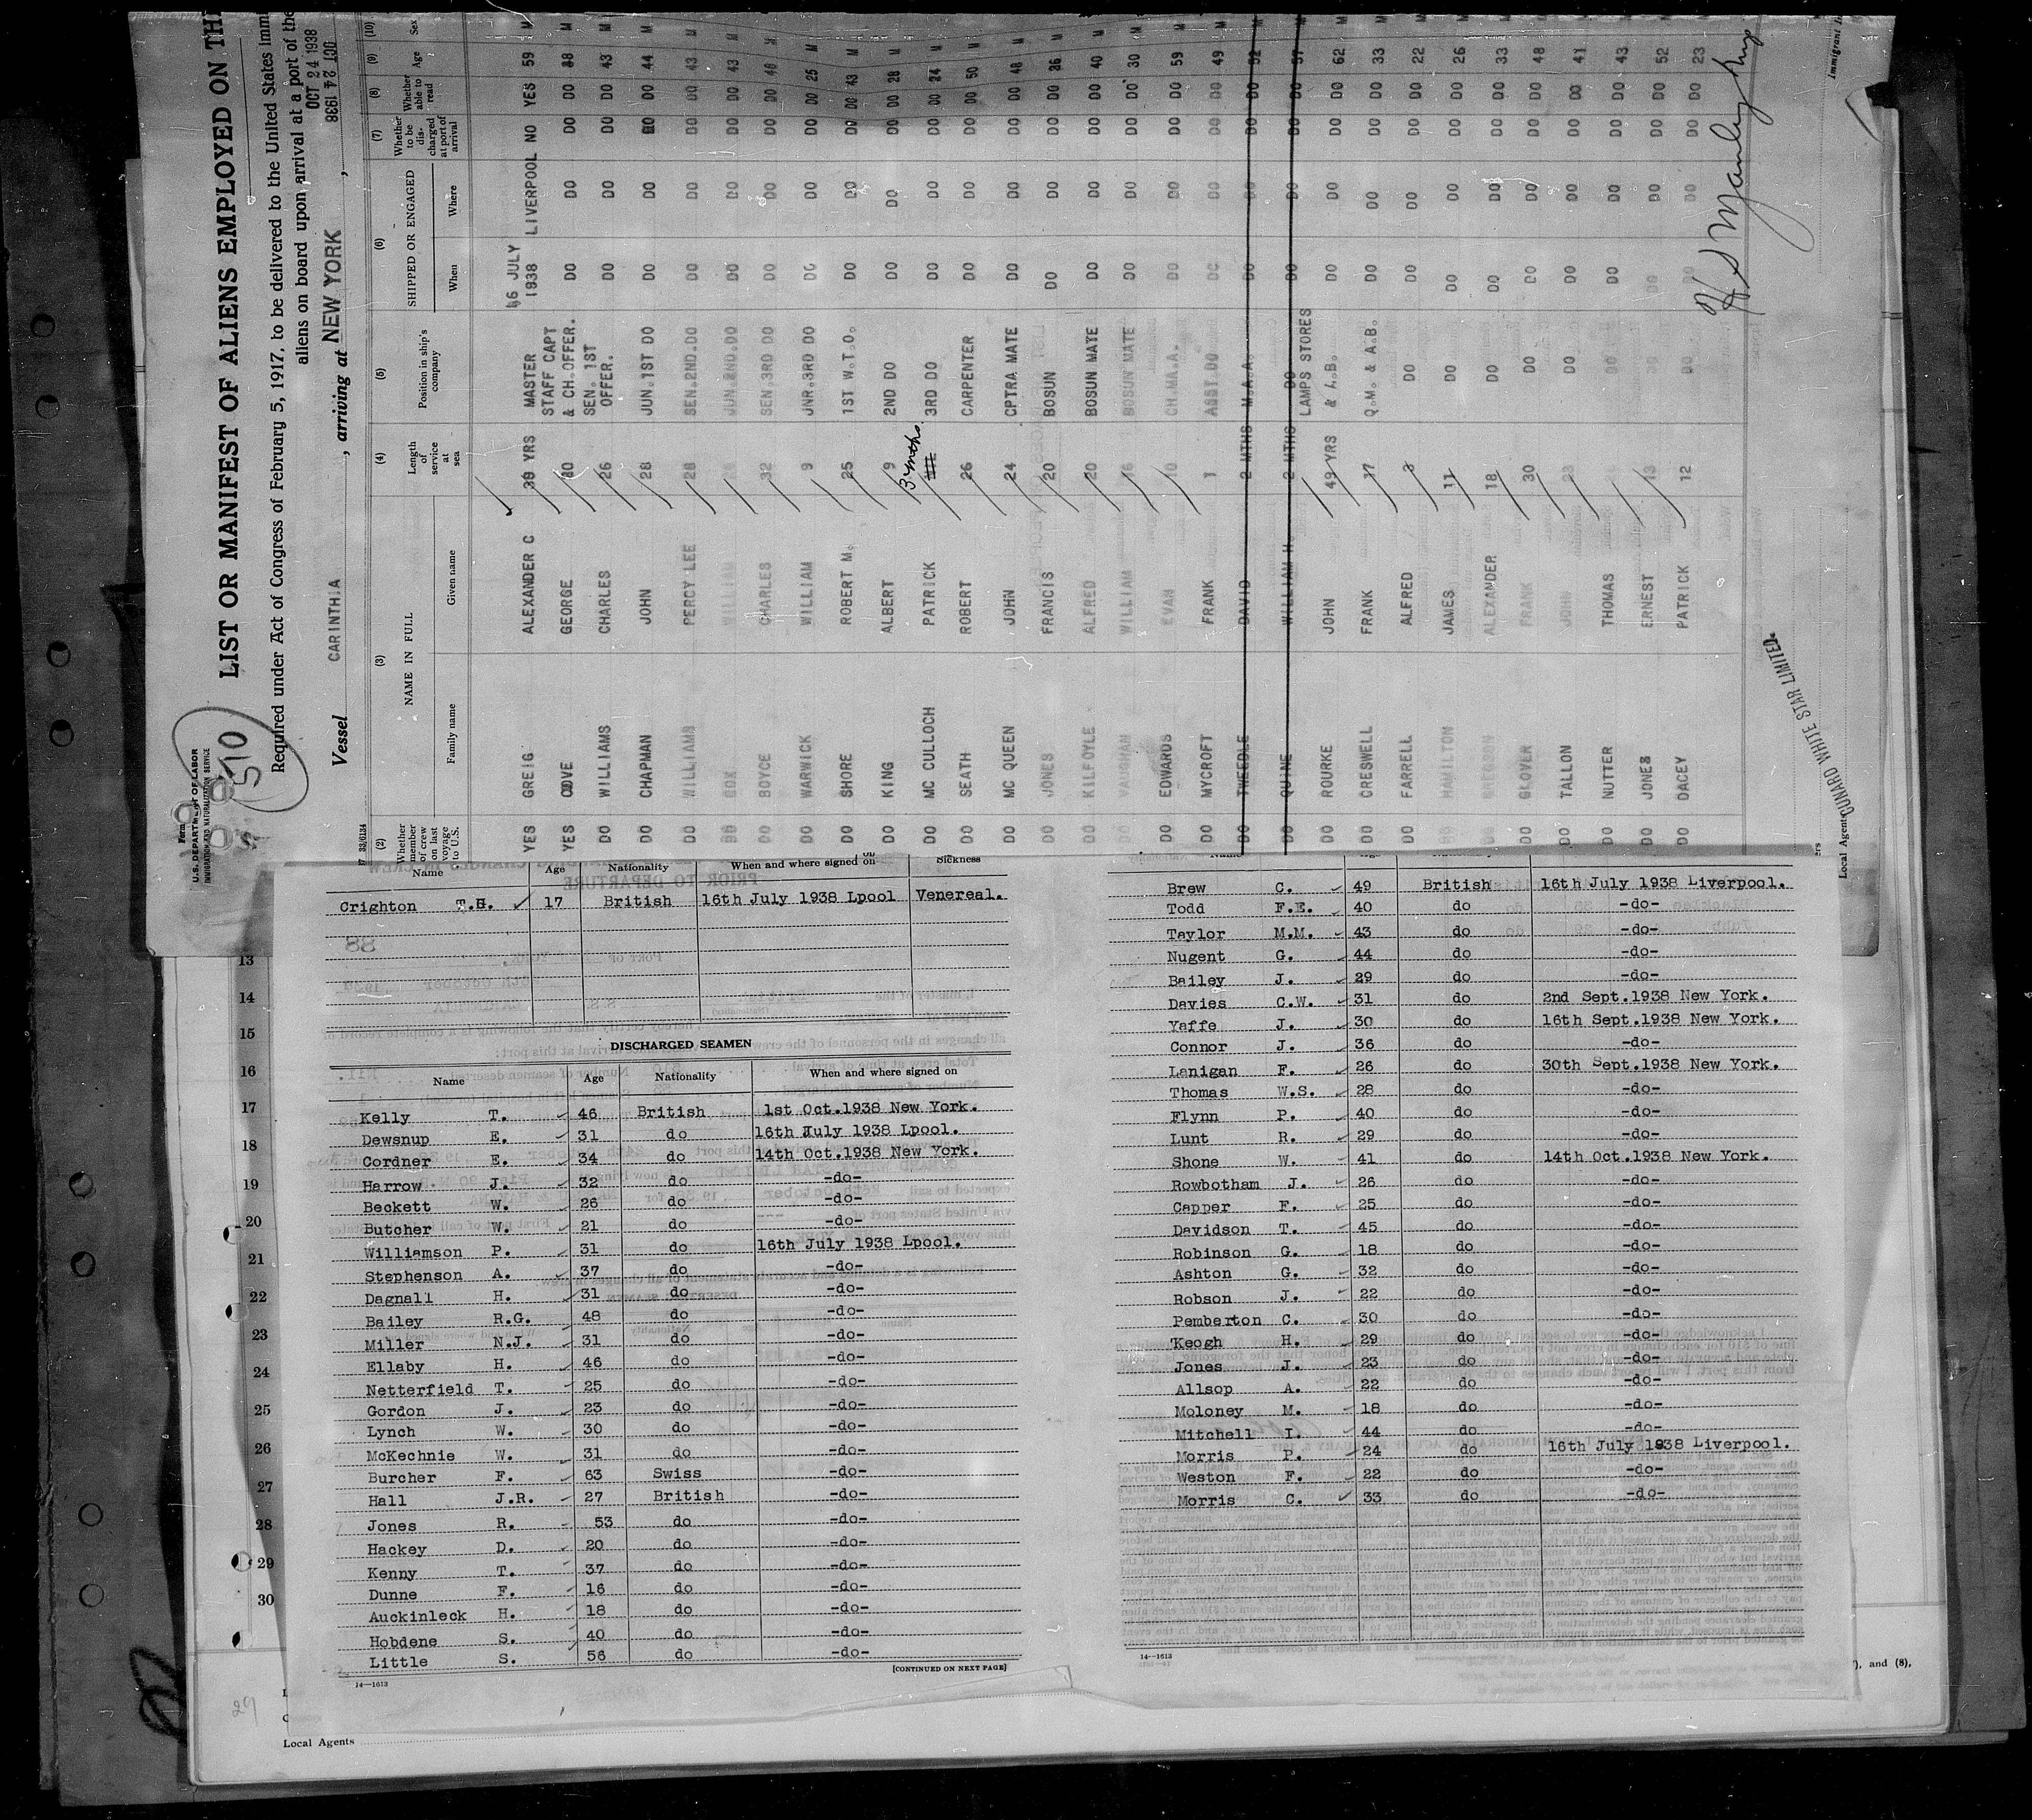 Form
U.S. DEPARTMENT OF LABOR
IMMIGRATION AND NATURALIZATION SERVICE
510
LIST OR MANIFEST OF ALIENS EMPLOYED ON TH
Required under Act of Congress of February 5, 1917, to be delivered to the United States immi
aliens on board upon arrival at a port of the
OCT 24 1938
OCT 24 1938
Vessel CARINTHIA, arriving at NEW YORK,
(2) (3) (4) (5) (6) (7) (8) (9) (10)
Whether member of crew on last voyage to U.S. NAME IN FULL Family name Given name Length of service at sea Position in ship's company SHIPPED OR ENGAGED When Where Whether to be discharged at port of arrival Whether able to read Age Sex
YES GREIG ALEXANDER C 39 YRS MASTER 16 JULY 1938 LIVERPOOL NO YES 59 M
YES COVE GEORGE 10 STAFF CAPT & CH.OFFER. DO DO DO DO 38 M
DO WILLIAMS CHARLES 26 SEN. 1ST OFFER. DO DO DO DO 43 M
DO CHAPMAN JOHN 28 JUN.1ST DO DO DO DO DO 44 M
DO WILLIAMS PERCY LEE 28 SEN.2ND.DO DO DO DO DO 43 M
DO COX WILLIAM JUN.2ND.DO DO DO DO DO 43 M
DO BOYCE CHARLES 32 SEN.3RD DO DO DO DO DO 48 M
DO WARWICK WILLIAM 9 JNR.3RD DO DO DO DO DO 25 M
DO SHORE ROBERT M. 25 1ST W.T.O. DO DO DO DO 43 M
DO KING ALBERT 9 2ND DO DO DO DO DO 28 M
DO MC CULLOCH PATRICK 3 mths. 3RD DO DO DO DO DO 24 M
DO SEATH ROBERT 26 CARPENTER DO DO DO DO 50 M
DO MC QUEEN JOHN 24 CPTRA MATE DO DO DO DO 48 M
DO JONES FRANCIS 20 BOSUN DO DO DO DO 36 M
DO KILFOYLE ALFRED 20 BOSUN MATE DO DO DO DO 40 M
DO VAUGHAN WILLIAM 16 BOSUN MATE DO DO DO DO 30 M
DO EDWARDS EVAN 10 CH.MA.A. DO DO DO DO 59 M
DO MYCROFT FRANK 1 ASST DO DO DO DO DO 49 M
DO TWEEDLE DAVID 2 MTHS M.A.A. DO DO DO DO 52 M
DO QUINE WILLIAM H. 2 MTHS DO DO DO DO DO 57 M
DO ROURKE JOHN 49 YRS LAMPS STORES & A.B. DO DO DO DO 62 M
DO CRESWELL FRANK 17 Q.M. & A.B. DO DO DO DO 33 M
DO FARRELL ALFRED 3 DO DO DO DO DO 22 M
DO HAMILTON JAMES 11 DO DO DO DO DO 26 M
DO ALEXANDER 18 DO DO DO DO DO 33 M
DO GLOVER FRANK 30 DO DO DO DO DO 48 M
DO TALLON JOHN 23 DO DO DO DO DO 41 M
DO NUTTER THOMAS DO DO DO DO DO 43 M
DO JONES ERNEST 13 DO DO DO DO DO 52 M
DO DACEY PATRICK 12 DO DO DO DO DO 23 M
CUNARD WHITE STAR LIMITED.
Local Agents
Immigrant
Name Age Nationality When and where signed on Sickness
Crighton T.H. 17 British 16th July 1938 Lpool Venereal.
DISCHARGED SEAMEN
Name Age Nationality When and where signed on
Kelly T. 46 British 1st Oct.1938 New York.
Dewsnup E. 31 do 16th July 1938 Lpool.
Cordner E. 34 do 14th Oct.1938 New York.
Harrow J. 32 do -do-
Beckett W. 26 do -do-
Butcher W. 21 do -do-
Williamson P. 31 do 16th July 1938 Lpool.
Stephenson A. 37 do -do-
Dagnall H. 31 do -do-
Bailey R.G. 48 do -do-
Miller N.J. 31 do -do-
Ellaby H. 46 do -do-
Netterfield T. 25 do -do-
Gordon J. 23 do -do-
Lynch W. 30 do -do-
McKechnie W. 31 do -do-
Burcher F. 63 Swiss -do-
Hall J.R. 27 British -do-
Jones R. 53 do -do-
Hackey D. 20 do -do-
Kenny T. 37 do -do-
Dunne F. 16 do -do-
Auckinleck H. 18 do -do-
Hobdene S. 40 do -do-
Little S. 56 do -do-
[CONTINUED ON NEXT PAGE]
14—1613
Brew C. 49 British 16th July 1938 Liverpool.
Todd F.E. 40 do -do-
Taylor M.M. 43 do -do-
Nugent G. 44 do -do-
Bailey J. 29 do -do-
Davies C.W. 31 do 2nd Sept.1938 New York.
Yaffe J. 30 do 16th Sept.1938 New York.
Connor J. 36 do -do-
Lanigan F. 26 do 30th Sept.1938 New York.
Thomas W.S. 28 do -do-
Flynn P. 40 do -do-
Lunt R. 29 do -do-
Shone W. 41 do 14th Oct.1938 New York.
Rowbotham J. 26 do -do-
Capper F. 25 do -do-
Davidson T. 45 do -do-
Robinson G. 18 do -do-
Ashton G. 32 do -do-
Robson J. 22 do -do-
Pemberton C. 30 do -do-
Keogh H. 29 do -do-
Jones J. 23 do -do-
Allsop A. 22 do -do-
Moloney M. 18 do -do-
Mitchell I. 44 do -do-
Morris P. 24 do 16th July 1938 Liverpool.
Weston F. 22 do -do-
Morris C. 33 do -do-
14—1613
13
14
15
16
17
18
19
20
21
22
23
24
25
26
27
28
29
30
), and (8),
29
Local Agents